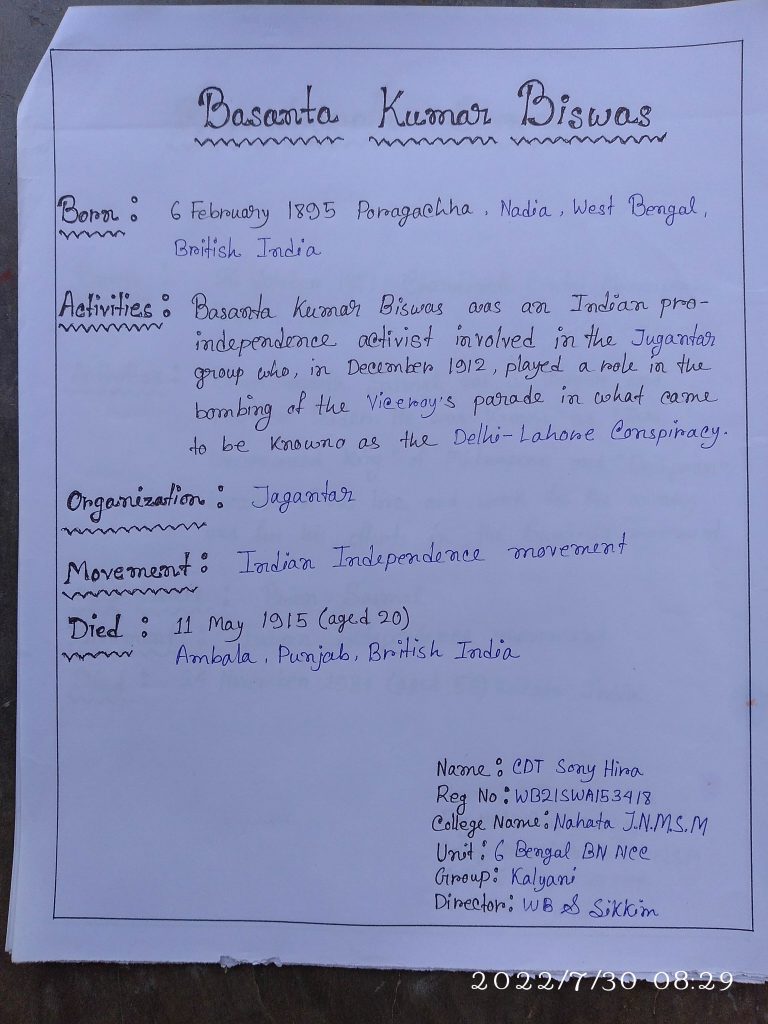 Basanta Kumar Biswas
Born : 6 February 1895 Porragachha, Nadia, West Bengal,
British India
Activities : Basanta Kumar Biswas was an Indian pro-
independence activist involved in the Jugantar
group who, in December 1912, played a role in the
bombing of the Viceroy's parade in what came
to be knowno as the Delhi-Lahore Conspiracy.
Organization : Jagantar
Movement : Indian Independence movement
Died : 11 May 1915 (aged 20)
Ambala, Punjab, British India
Name : CDT Sony Hira
Reg No : WB21SWA153418
College Name : Nahata J.N.M.S.M
Unit : 6 Bengal BN NCC
Group : Kalyani
Director : WB & Sikkim
2022/7/30 08:29